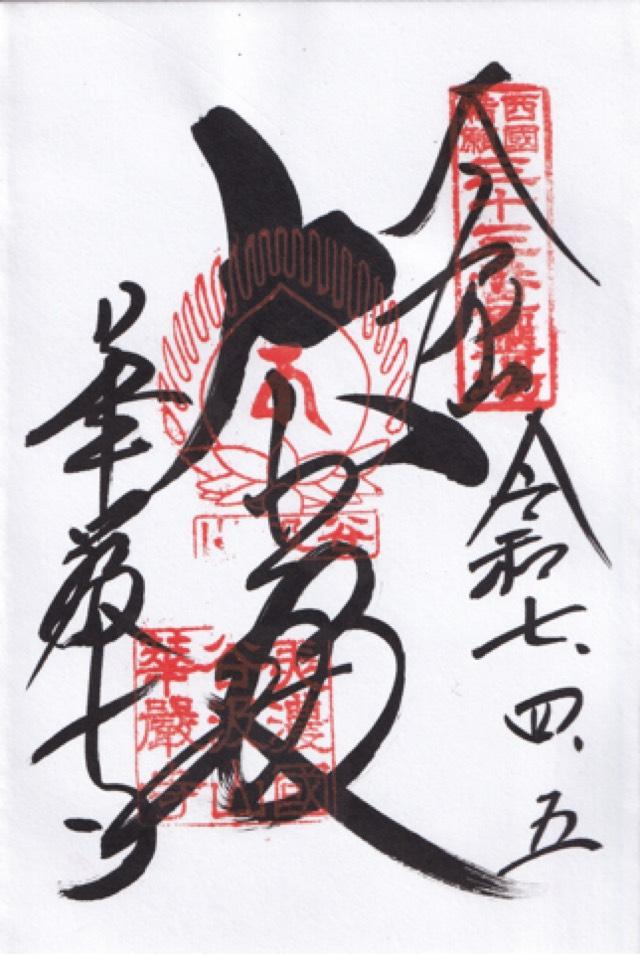 西國
三十三
令和七、四、五
大悲殿
華厳寺
美濃國
谷汲山
華嚴寺